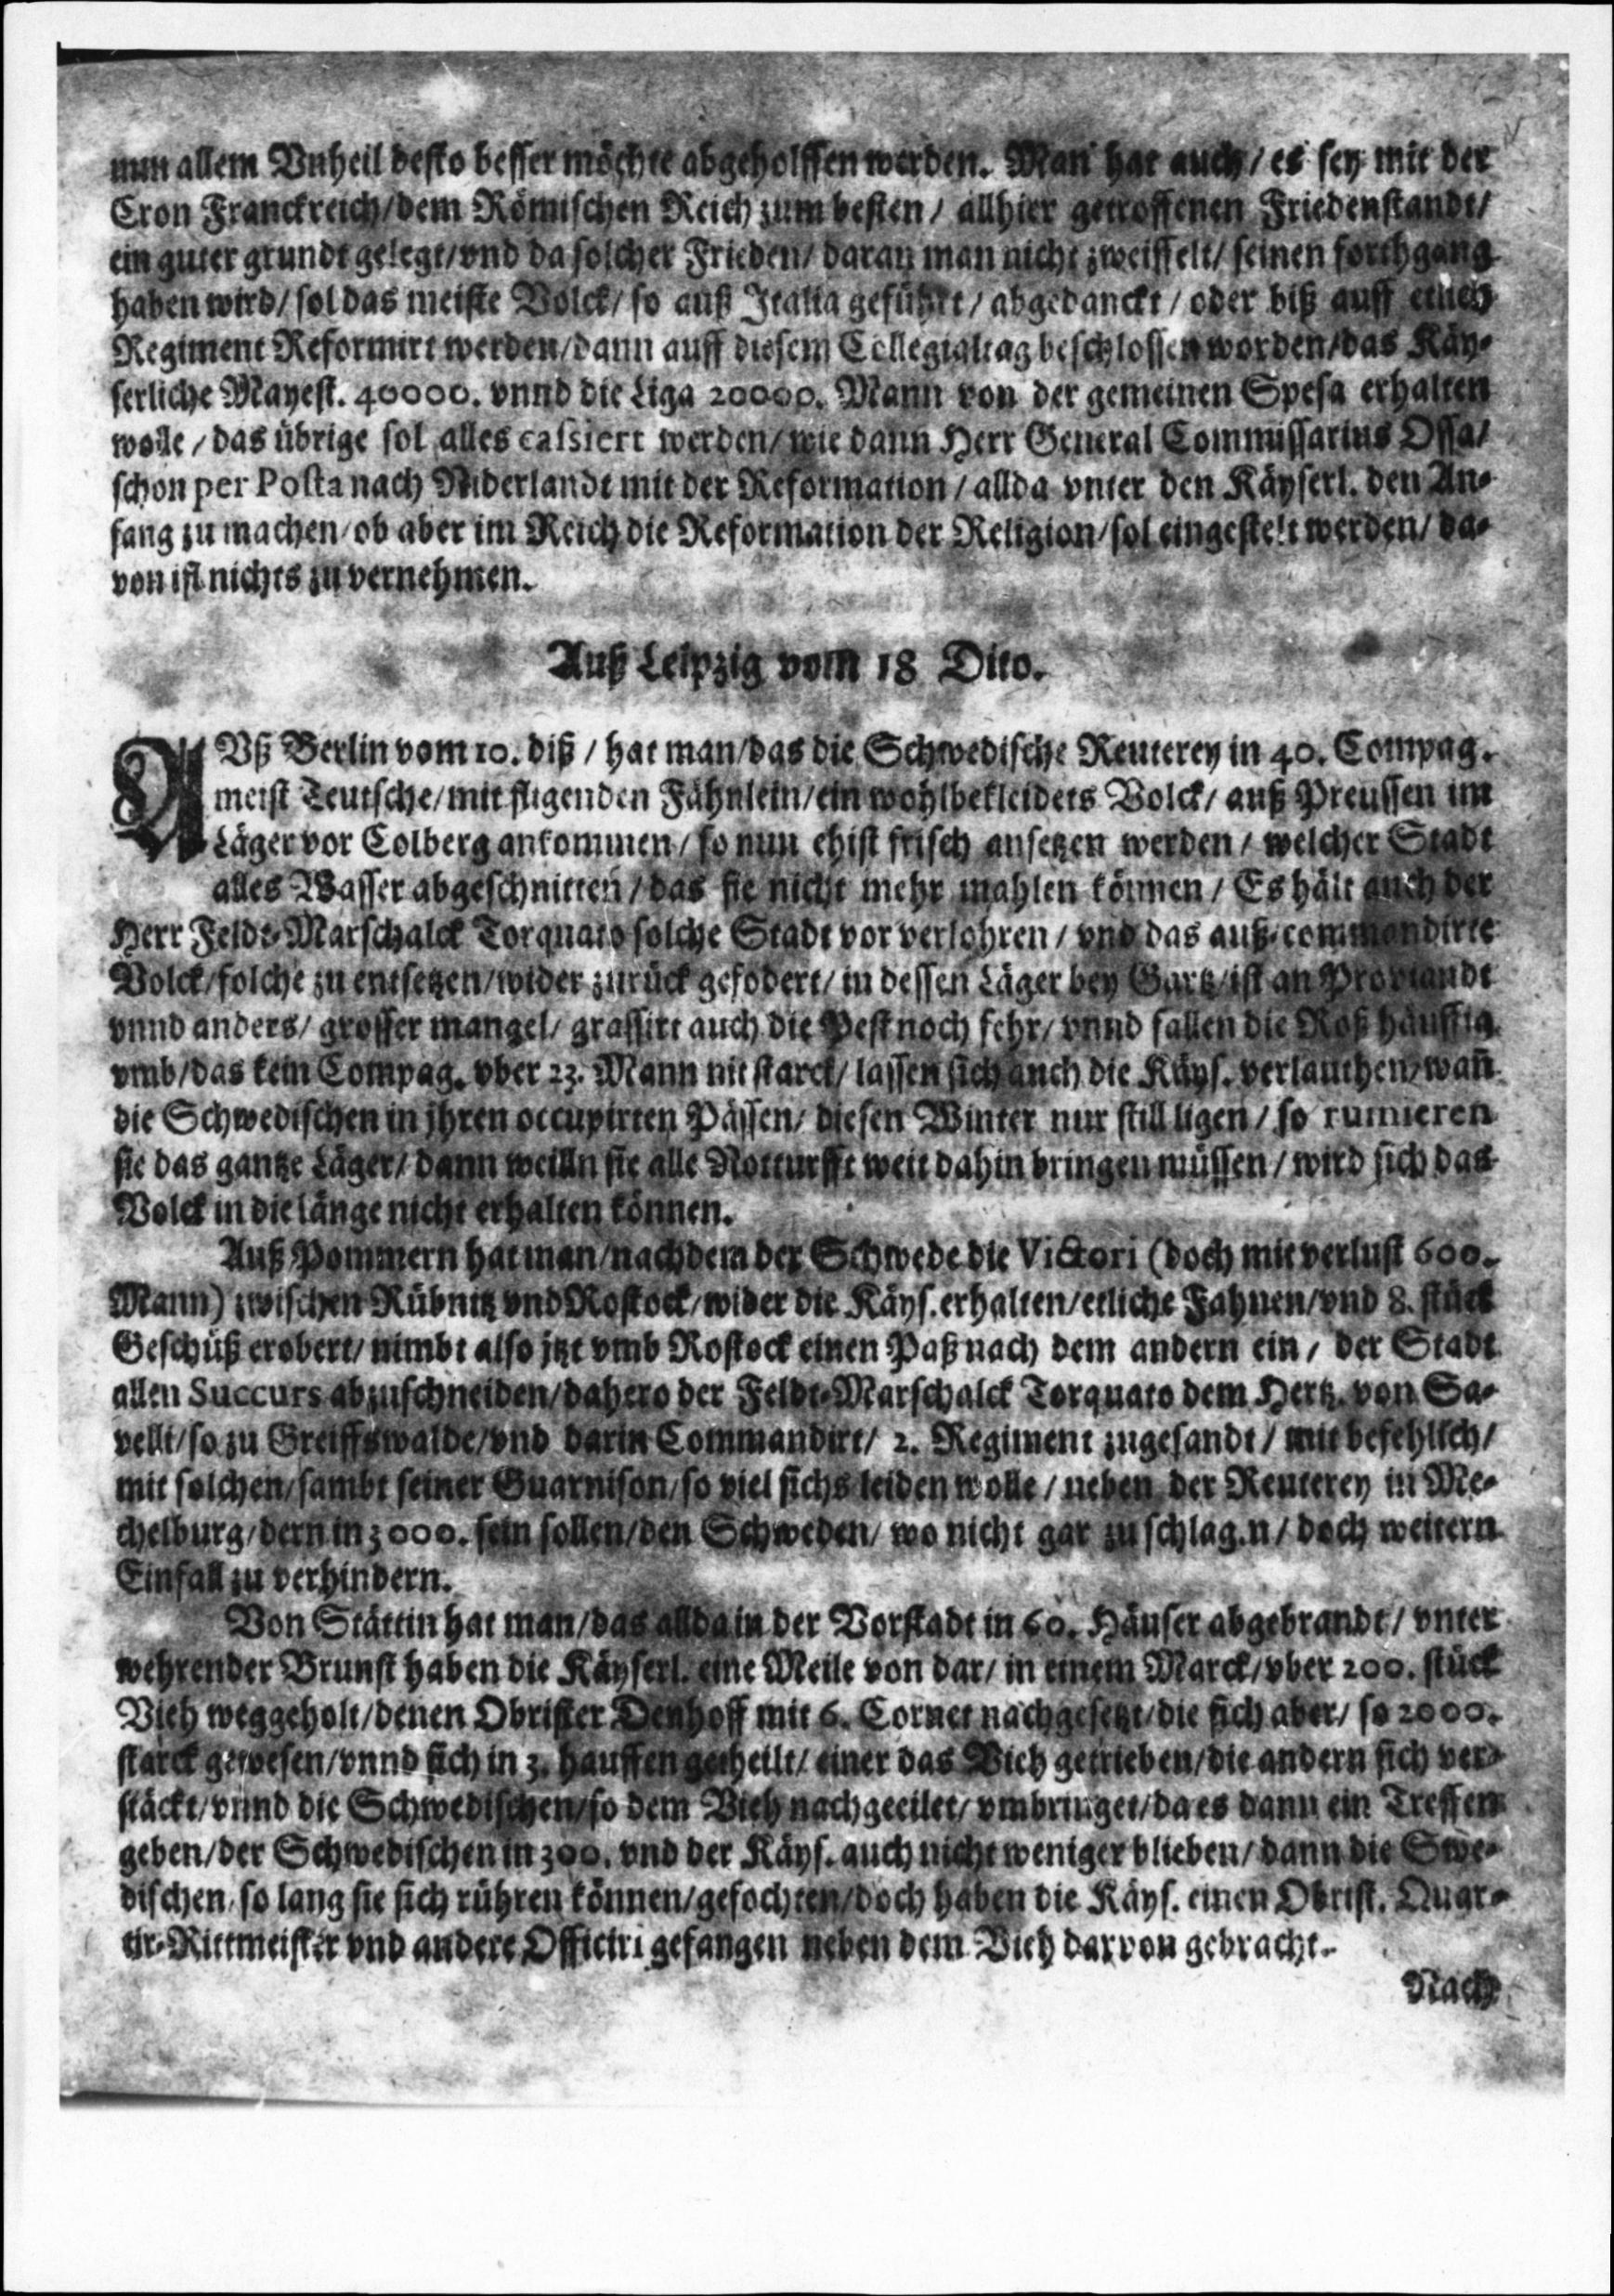 nun allem Vnheil desto besser möchte abgeholffen werden. Man hat auch / es sey mit der
Cron Franckreich / dem Römischen Reich zum besten / allhier getroffenen Friedenstandt /
ein guter grundt gelegt / vnd da solcher Frieden / daran man nicht zweiffelt / seinen forthgang
haben wird / sol das meiste Volck / so auß Italia geführt / abgedanckt / oder biß auff etlich
Regiment Reformirt werden / dann auff diesem Collegialtag beschlossen worden / das Käy-
serliche Mayest. 40000. vnnd die Liga 20000. Mann von der gemeinen Spesa erhalten
wolle / das übrige sol alles cassiert werden / wie dann Herr General Commissarius Ossa /
schon per Posta nach Niderlandt mit der Reformation / allda vnter den Käyserl. den An-
fang zu machen / ob aber im Reich die Reformation der Religion / sol eingestelt werden / da-
von ist nichts zu vernehmen.
Auß Leipzig vom 18 Dito.
AVß Berlin vom 10. diß / hat man / das die Schwedische Reuterey in 40. Compag.
meist Teutsche / mit fligenden Fähnlein / ein wohlbekleidets Volck / auß Preussen im
Läger vor Colberg ankommen / so nun ehist frisch ansetzen werden / welcher Stadt
alles Wasser abgeschnitten / das sie nicht mehr mahlen können / Es hält auch der
Herr Feldt-Marschalck Torquato solche Stadt vor verlohren / vnd das auß-commondirte
Volck / solche zu entsetzen / wider zurück gefodert / in dessen Läger bey Gartz / ist an Proviandt
vnnd anders / grosser mangel / grassirt auch die Pest noch sehr / vnnd fallen die Roß häuffig
vmb / das kein Compag. vber 23. Mann nit starck / lassen sich auch die Käys. verlauthen / wañ
die Schwedischen in jhren occupirten Pässen / diesen Winter nur still ligen / so ruinieren
sie das gantze Läger / dann weilln sie alle Notturfft weit dahin bringen müssen / wird sich das
Volck in die länge nicht erhalten können.
Auß Pommern hat man / nach dem der Schwede die Victori (doch mit verlust 600.
Mann) zwischen Rübnitz vnd Rostock / wider die Käys. erhalten / etliche Fahnen / vnd 8. stück
Geschüß erobert / nimbt also jtzt vmb Rostock einen Paß nach dem andern ein / der Stadt
allen Succurs abzuschneiden / dahero der Feldt-Marschalck Torquato dem Hertz. von Sa-
velli / so zu Greiffswalde / vnd darin Commandirt / 2. Regiment zugesandt / mit befehlich /
mit solchen / sambt seiner Guarnison / so viel sichs leiden wolle / neben der Reuterey in Me-
chelburg / dern in 3000. sein sollen / den Schweden / wo nicht gar zu schlag.n / doch weitern
Einfall zu verhindern.
Von Stättin hat man / das allda in der Vorstadt in 60. Häuser abgebrandt / vnter
wehrender Brunst haben die Käyserl. eine Meile von dar / in einem Marck / vber 200. stück
Vieh weggeholt / denen Obrister Denhoff mit 6. Cornet nachgesetzt / die sich aber / so 2000.
starck gewesen / vnnd sich in 3. hauffen getheilt / einer das Vieh getrieben / die andern sich ver-
stäckt / vnnd die Schwedischen / so dem Vieh nachgeeilet / vmbringet / da es dann ein Treffen
geben / der Schwedischen in 300. vnd der Käys. auch nicht weniger blieben / dann die Swe-
dischen / so lang sie sich rühren können / gefochten / doch haben die Käys. einen Obrist. Quar-
tir-Rittmeister vnd andere Officiri gefangen neben dem Vieh darvon gebracht.
Nach